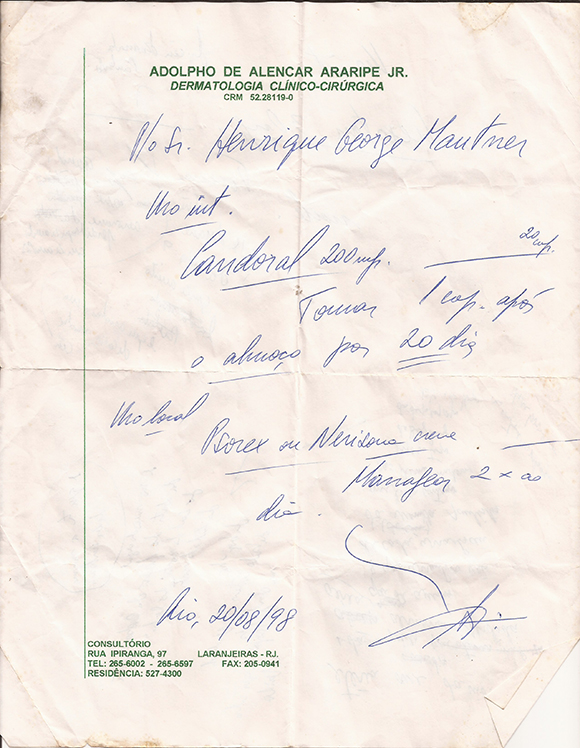 ADOLPHO DE ALENCAR ARARIPE JR.
DERMATOLOGIA CLÍNICO-CIRÚRGICA
CRM 52.28119-0
P/o Sr. Henrique George Mautner
Uso int.
Candoral 200mg. 20 cap.
Tomar 1 cap. após
o almoço por 20 dia
Uso local
Psorex ou Nerisona creme
Massagear 2x ao
dia.
Rio, 20/08/98
CONSULTÓRIO
RUA IPIRANGA, 97 LARANJEIRAS - RJ.
TEL: 265-6002 - 265-6597 FAX: 205-0941
RESIDÊNCIA: 527-4300